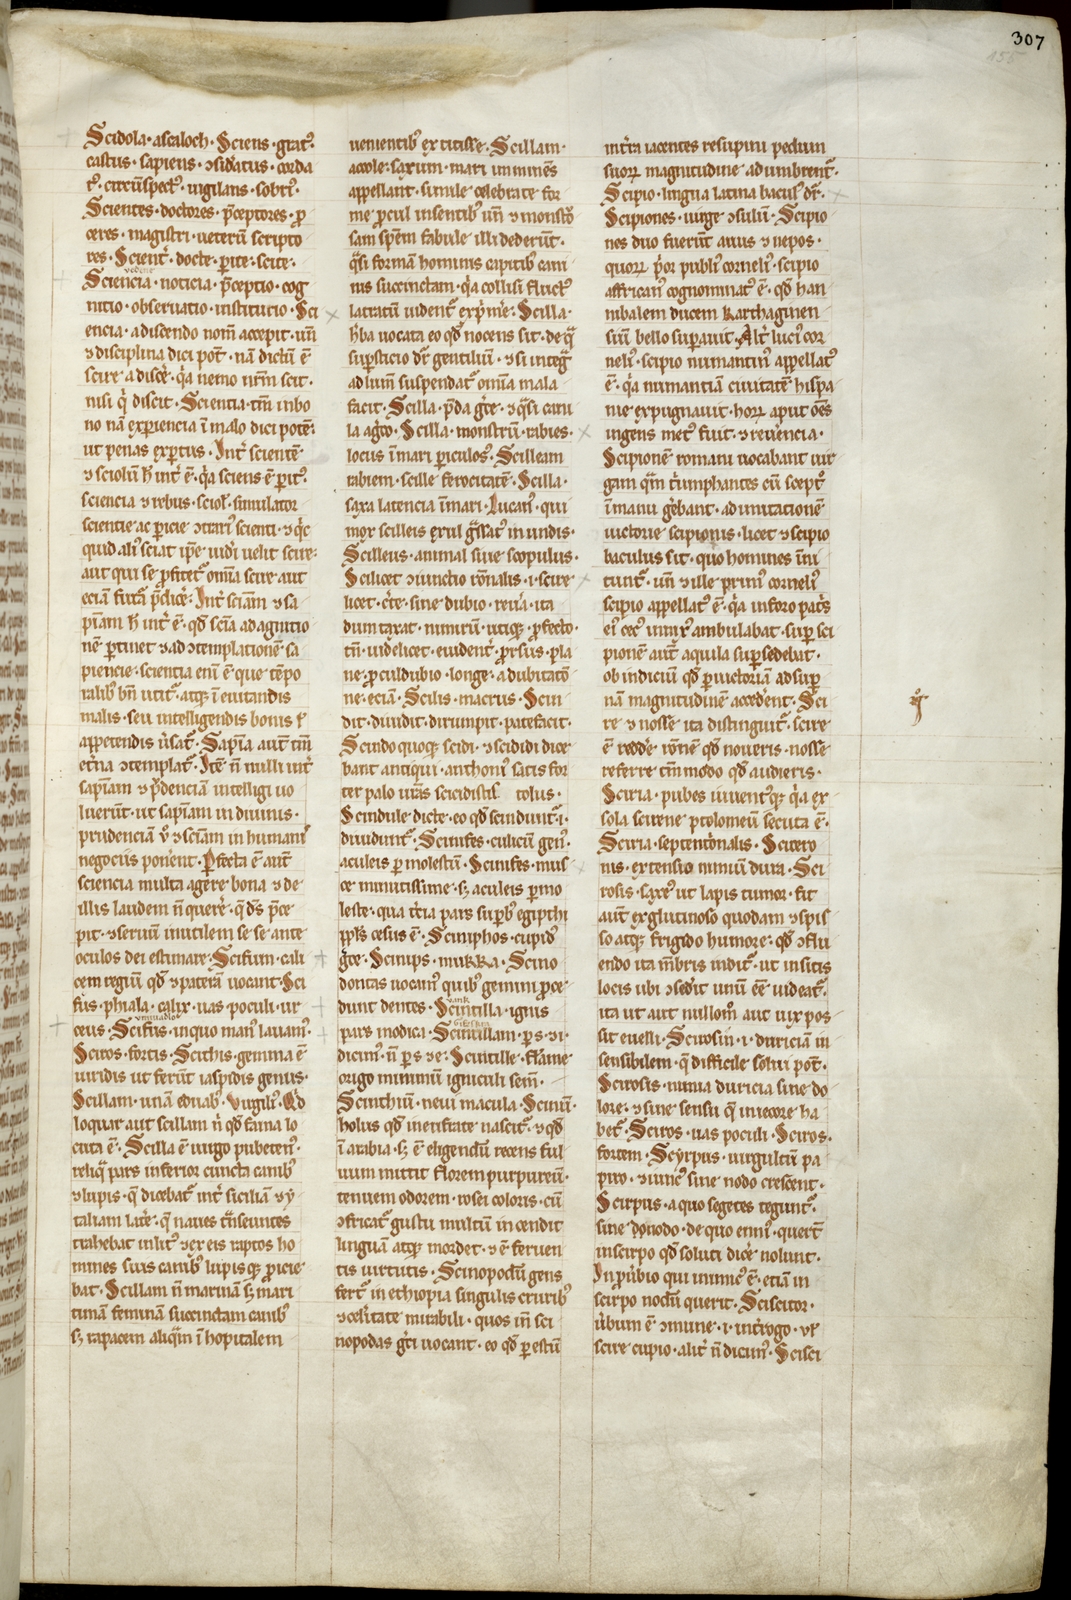 307
155
Scidola · ascaloch · Sciens · gnar᷒
castus · sapiens · ꝯsid̾atus · corda
t᷒ · circu̅spect᷒ · vigilans · sobri᷒ ·
Scientes · doctores · p̅ceptores · p̲ro
ceres · magistri · ueteru̅ scripto
res · Scient̾ · docte · p̲ite · scite ·
Sciencia · noticia · p̅ceptio · cog
nitio · obseruatio · institutio · Sci
encia · a discendo nom̅ accepit · un̅
⁊ disciplina dici pot̅ · na̅ dictu̅ e̅
scire a disce̾ · q̾a nemo nr̅m scit ·
nisi q̾ discit · Scientia · tm̅ in bo
no na̅ exp̲iencia i̅ malo dici pote̅ ·
ut penas exp̲tus · Int̾ sciente̅
⁊ sciolu̅ h̅ int̾ e̅ · q̾a sciens e̅ p̲it᷒
sciencia ⁊ rebus · sciol᷒ · simulator
scientie ac p̲icie
quid ali᷒ sciat ip̅e uidi uelit scire ·
aut qui se p̲fitet᷒ om̅ia scire aut
ecia̅ fut̾a p̅dice̾ · Int̾ scia̅m ⁊ sa
pia̅m h̅ int̾ e̅ · qd̅ scia̅ ad agnitio
ne̅ p̲tinet ⁊ ad ꝯtemplatione̅ sa
piencie · scientia eni̅ e̅ que te̅po
ralib᷒ bn̅ utit᷒ · atq; i̅ euitandis
malis · seu intelligendis bonis ł
appetendis u̾sat᷒ · Sapia̅ aut̅ tm̅
et̾na ꝯtemplat᷒ · Ite̅ n̅ nulli int̾
sapia̅m ⁊ p̾dencia̅ intelligi uo
luerūt · ut sapia̅m in diuinis ·
prudencia̅ u̾ ⁊ scia̅m in humanis
negociis ponent · P̲fecta e̅ aut̅
sciencia multa agere bona ⁊ de
illis laudem n̅ quere̾ · q̅ d̅s p̅ce
pit · ⁊ seruu̅ inutilem se se ante
oculos dei estimare · Scifum · cali
cem regiu̅ qd̅ ⁊ patera̅ uocant · Sci
fus · phiala · calix · uas · poculi · ur
ceus · Scifus · in quo man᷒ lauam᷒ ·
Sciros · fortis · Scithis · gemma e̅
uiridis ut feru̅t iaspidis genus ·
Scillam · una̅
loquar aut scillam n̾ qd̅ fama lo
cuta e̅ · Scilla e̅ uirgo pubeten᷒ ·
reliq̅ pars inferior cuncta canib᷒
⁊ lupis · q̅ dicebat᷒ int̾ sicilia̅ ⁊ y
taliam late̾ · q̅ naues t̾nseuntes
trahebat in lit᷒ ⁊ ex eis raptos ho
mines suis canib᷒ lupisq; p̲icie
bat · Scillam n̅ marina̅ s; mari
tima̅ femina̅ succincta̅ canib᷒
s; rapacem aliq̅m i̅hopitalem
uenientib᷒ extitisse · Scillam ·
accole · saxum · mari imine̅s
appellant · simile celebrate for
me p̲cul uisentib᷒ un̅ ⁊ monst̾o
sam spe̅m fabule illi dederu̅t ·
q̅si forma̅ hominis capitib᷒ cani
nis succincta̅ · q̾a collisi fluct᷒
latratu̅ uident᷒ exp̾me̾ · Scilla ·
h̾ba uocata eo qd̅ nocens sit · de q̅
sup̲sticio dr̅ gentiliu̅ · ⁊ si integ̅
ad limi̅ suspendat᷒ om̅ia mala
facit · Scilla · p̅da g̾ce · ⁊ q̅si cani
la ag̾co · Scilla · monstru̅ · rabies ·
locus i̅ mari p̲iculos᷒ · Scilleam
rabiem · scille ferocitate̅ · Scilla ·
saxa latencia i̅ mari · Lucan᷒ · qui
mox scilleis exul g̅ssat᷒ in undis ·
Scilleus · animal siue scopulus ·
Scilicet ꝯiunctio ro̅nalis · i · scire
licet · c̾te · sine dubio · reu̾a · ita
dumtaxat · nimiru̅ · utiq; · p̲fecto ·
tn̅ · uidelicet · euident̾ · p̲rsus · pla
ne · p̲culdubio · longe · a dubitato̅
ne · ecia̅ · Scilis · macrus · Scin
dit · diuidit · dirumpit · patefacit ·
Scindo quoq; scidi · ⁊ scididi dice
bant antiqui · anthoni᷒ satis for
ter palo
Scindule dicte · eo qd̅ scindunt᷒ · i ·
diuidunt᷒ · Scinifes · culicu̅ gen᷒ ·
aculeis p̲molestu̅ · Scinifes · mus
ce minutissime · s; aculeis p̲mo
leste · qua t̾cia pars sup̲b᷒ egipthi
pp̲ls cesus e̅ · Sciniphos · cupid᷒
g̾ce · Scinips · mukka · Scino
dontas uocam᷒ quib᷒ gemini p̲ce
dunt dentes · Scintilla · ignis
vank
pars modica · Scintillam · p̲ · s · ⁊ i ·
dicim᷒ · n̅ p̲ s ⁊ e · Scintille · fla̅me
origo minimu̅ igniculi sem̅ ·
Scinthiu̅ · neui macula · Scinu̅ ·
holus qd̅ in eufrate nascit᷒ · ⁊ qd̅
i̅ arabia · s; e̅ eligendu̅ recens ful
uum mittit florem purpureu̅ ·
tenuem odorem · rosei coloris · cu̅
ꝯfricat᷒ gustu multu̅ incendit
lingua̅ atq; mordet · ⁊ e̅ feruen
tis uirtutis · Scinopodu̅ gens
fert᷒ in ethiopia singulis cruribus
⁊ cel̾itate mirabili · quos in̅ sci
nopodas g̾ci uocant · eo qd̅ p̲ estu̅
int̾ra iacentes resupini pedum
suoꝝ magnitudine adumbrent᷒ ·
Scipio · lingua latina bacul᷒ dr̅ ·
Scipiones · uirge ꝯsulu̅ · Scipio
nes duo fueru̅t auus ⁊ nepos ·
quoꝝ p̾or publi᷒ corneli᷒ · scipio
affrican᷒ cognominat᷒ e̅ · qd̅ han
nibalem ducem karthaginen
siu̅ bello sup̲auit · Alt̾ luci᷒ cor
neli᷒ · scipio numantin᷒ appellat᷒
e̅ · q̾a numantia̅ ciuitate̅ hispa
nie expugnauit · horꝝ aput oe̅s
ingens met᷒ fuit · ⁊ reue̾ncia ·
Scipione̅ romani uocabant uir
gam q̅m t̾umphantes cu̅ scept᷒
i̅ manu g̾ebant · ad imitatione̅
uictorie scipionis · licet ⁊ scipio
baculus sit · quo homines i̅ni
tunt᷒ · un̅ ⁊ ille prim᷒ corneli᷒
scipio appellat᷒ e̅ · q̾a in foro pat̾s
ei᷒ cec᷒ innix᷒ ambulabat · sup̲ sci
pione̅ aut̅ aquila sup̲sedebat ·
ob indiciu̅ qd̅ p̲ uictoria̅ ad sup̲
na̅ magnitudine̅ accede̾nt · Sci
re ⁊ nosse ita distinguit᷒ · scire
e̅ redde̾ ro̅ne̅ qd̅ noueris · nosse
referre tm̅modo qd̅ audieris ·
Sciria · pubes iuuent᷒q; q̾a ex
sola scirene ptolomeu̅ secuta e̅ ·
Sciria · septent̾onalis · Scicero
nis · extensio nimiu̅ dura · Sci
rosis · saxe᷒ ut lapis tumor · fit
aut̅ ex glutinoso quodam ⁊ spis
so atq; frigido humore · qd̅ ꝯflu
endo ita m̅bris indit᷒ · ut insitis
locis ubi ꝯsedit unu̅ e̅e uideat᷒ ·
ita ut aut nullom᷒ aut uix pos
sit euelli · Scirosin · i · duricia̅ in
sensibilem · q̅ difficile solui pot̅ ·
Scirosis · nimia duricia sine do
lore · ⁊ sine sensu q̅ in iecore ha
bet᷒ · Sciros · uas poculi · Sciros ·
fortem · Scyrpus · uirgultu̅ pa
piro · ⁊ iunc᷒ sine nodo crescent ·
Scirpus · a quo segetes tegunt᷒ ·
sine nodo · de quo enni᷒ · quer̅t
in scirpo qd̅ soluti dice̾ nolunt ·
In p̲u̾bio qui inimic᷒ e̅ · etia̅ in
scirpo nodu̅ querit · Sciscitor ·
u̾bum e̅ ꝯmune · i · int̾rogo · vł
scire cupio · alit̾ n̅ dicim᷒ · Scisci